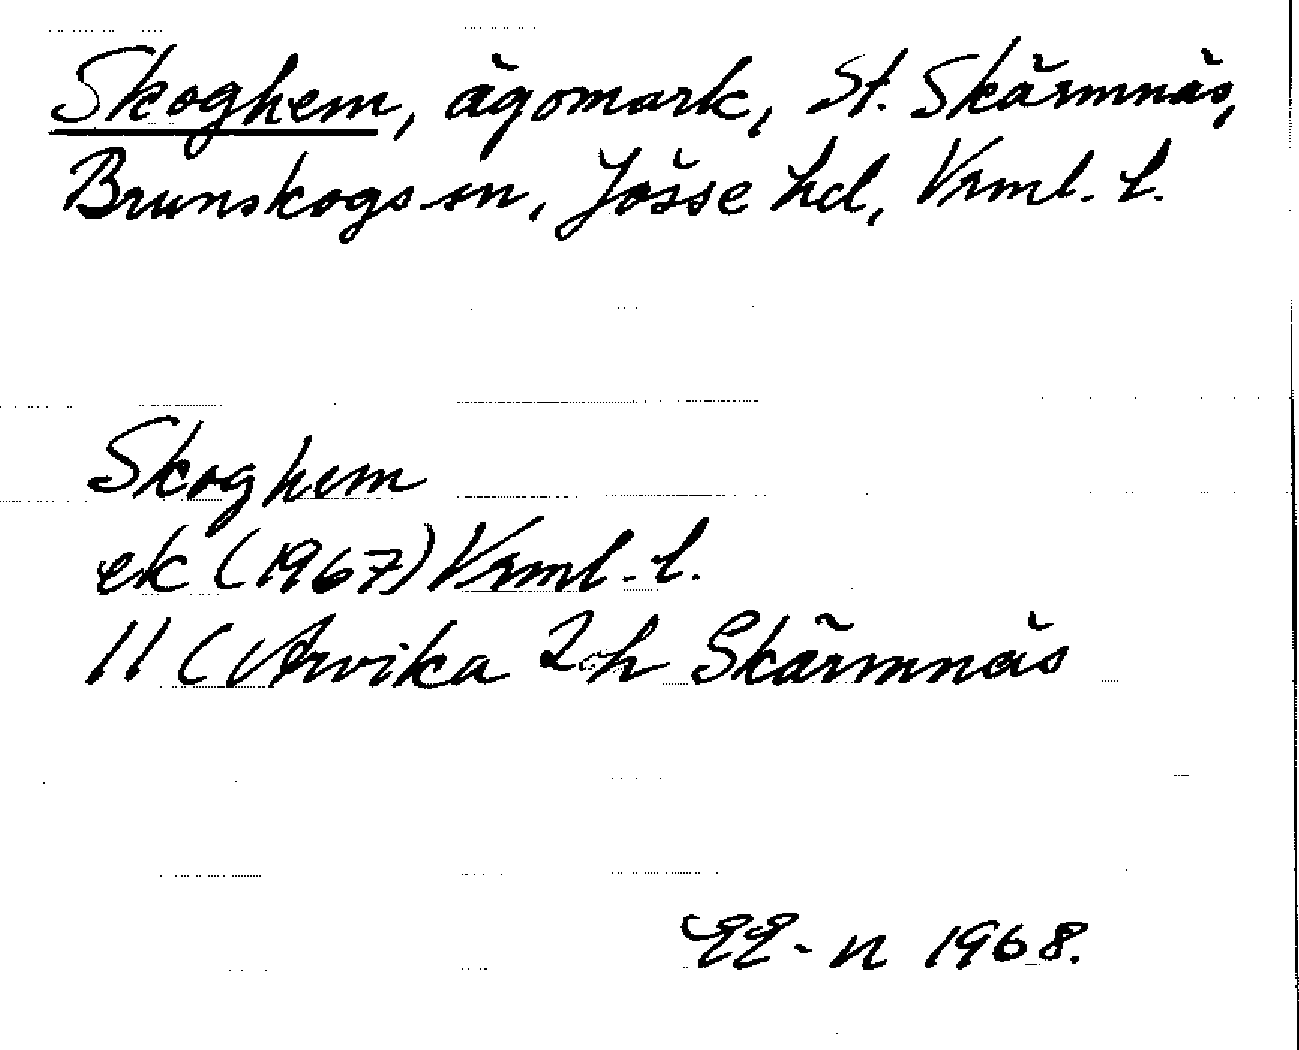 Skoghem, ägomark, St. Skärmnäs,
Brunskogs sn, Jösse hd, Vrml. l.
Skoghem
ek (1967) Vrml. l.
11 C Arvika 2 h Skärmnäs
1968.